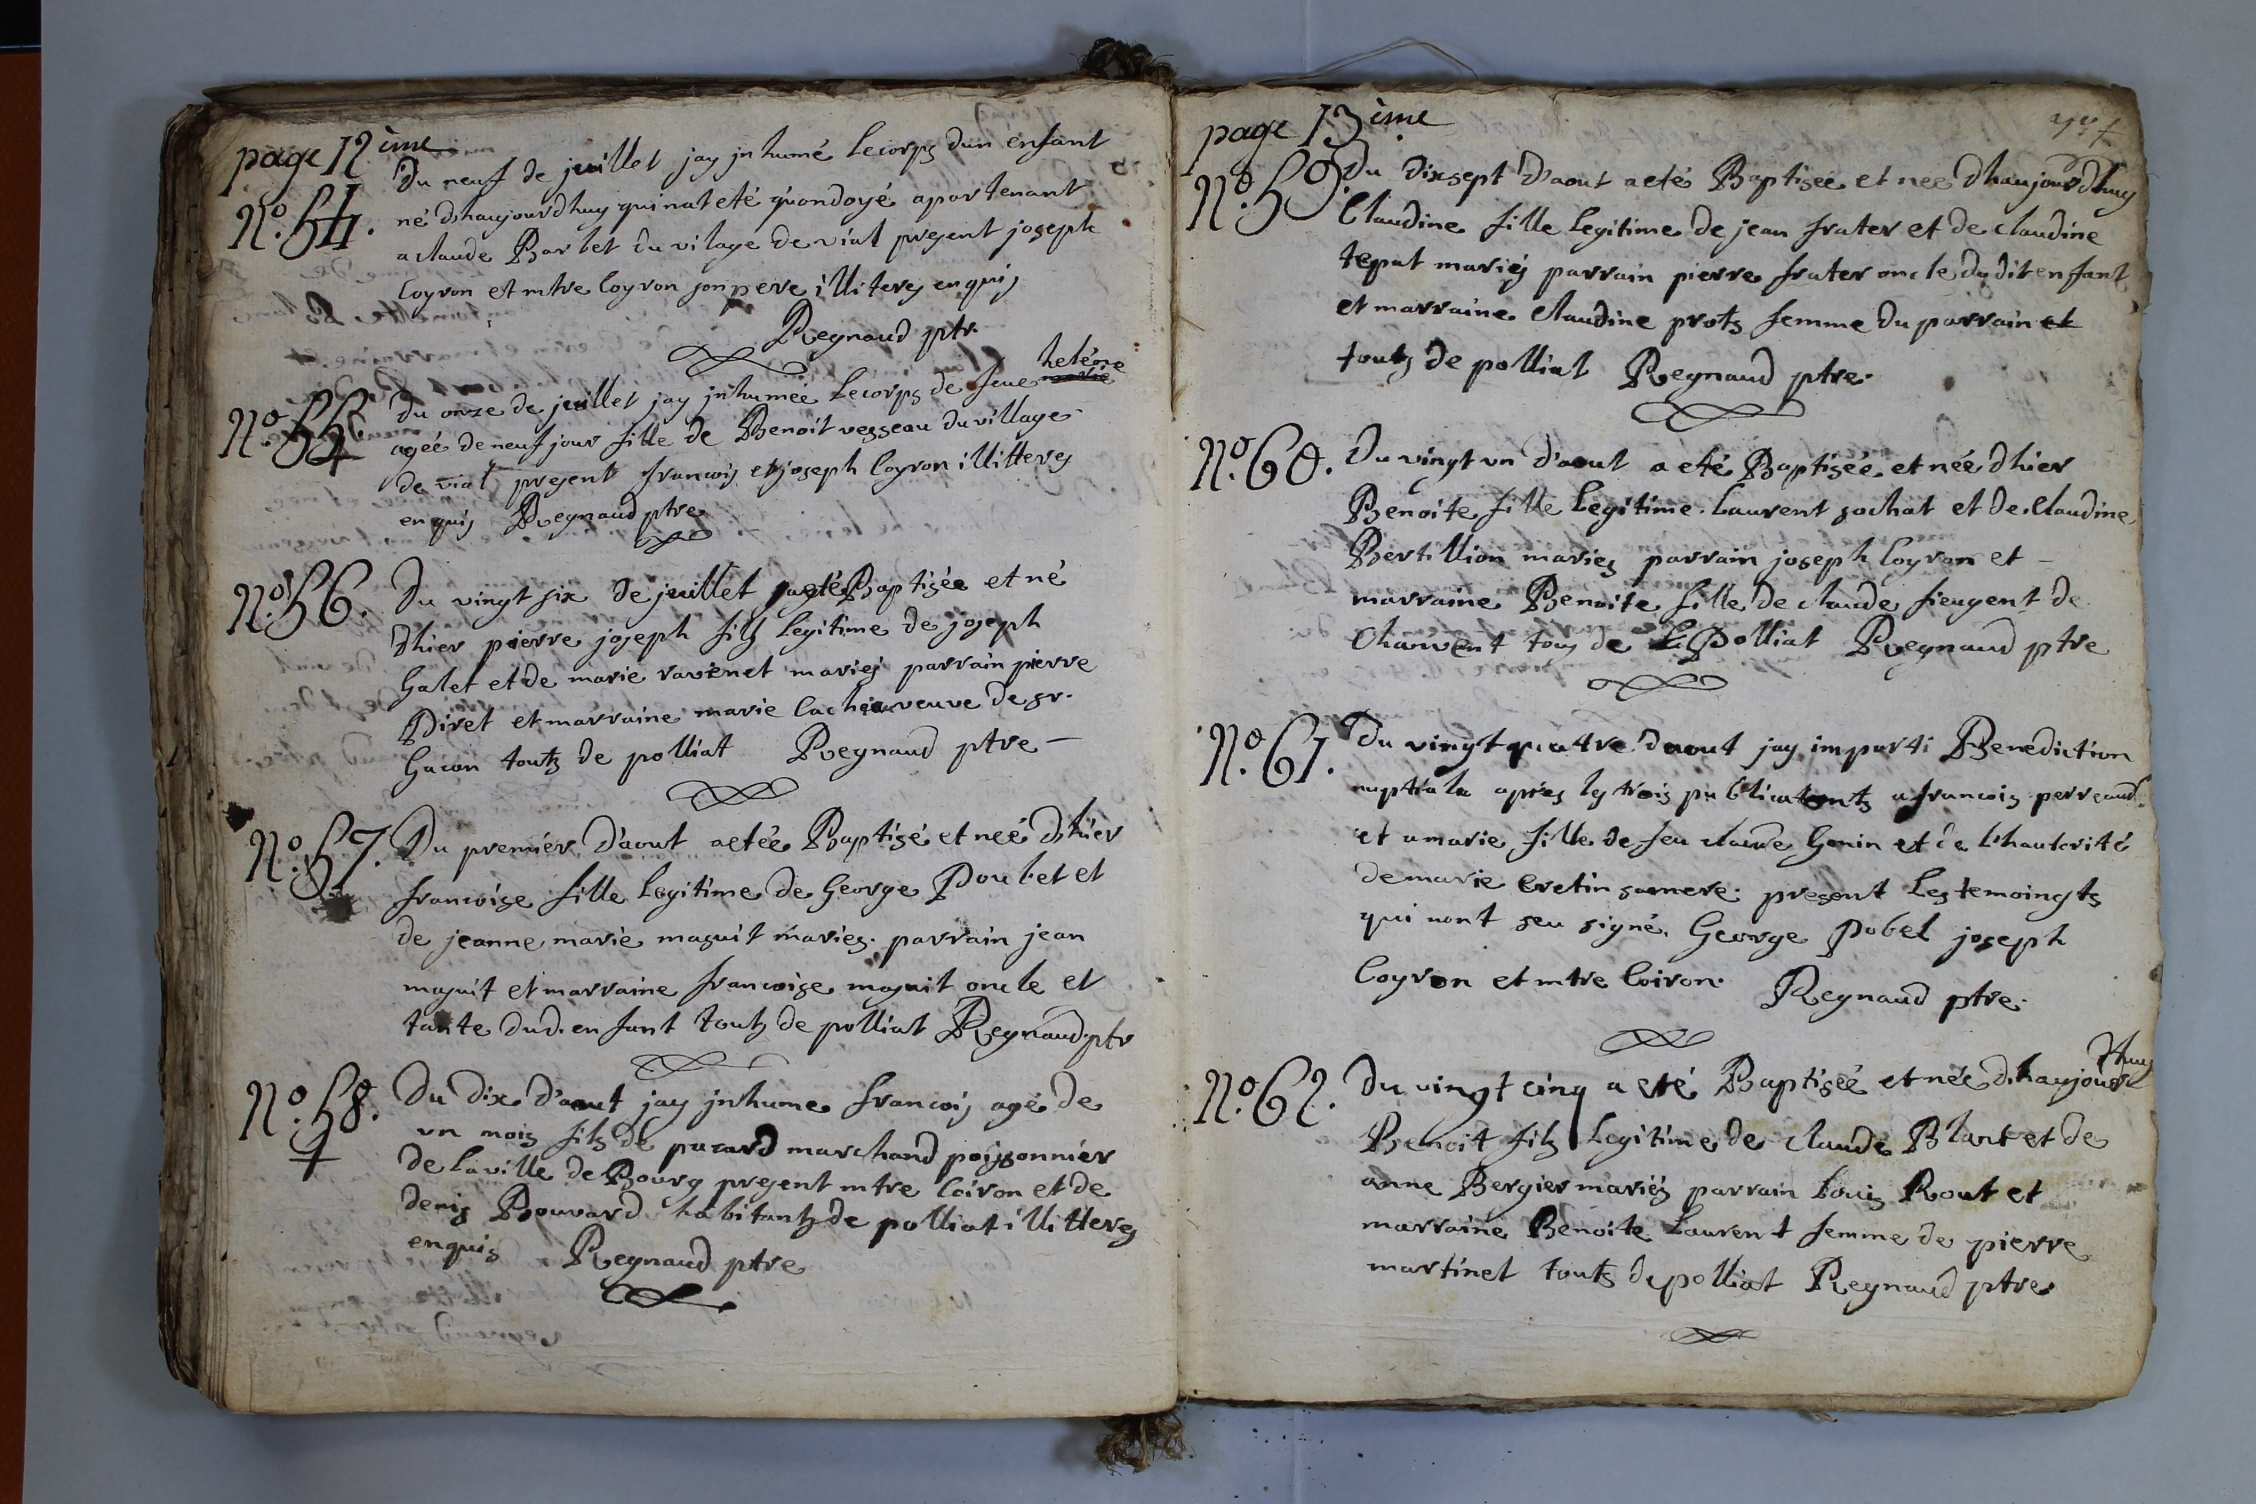 page 12 ème
N.o 54. Du neuf de jeuillet jay jnhumé le corps dun enfant
né dhaujourdhuy qui nat eté quondoyé apartenant
a claude Barbet du vilage de vial present joseph
Coyron et mtre Coyron son pere illiteres enquis
Regnaud ptr.
N.o 55 Du onze de jeuillet jay jnhumée le corps de feue helene
agée de neuf jour fille de Benoit vesseau du village
de vial present francois et joseph Coyron illitteres
enquis Regnaud ptre
N.o 56. Du vingt six de jeuillet a eté Baptisée et né
dhier pierre joseph filz legitime de joseph
Galet et de marie ravenet mariés parrain pierre
Piret et marraine marie veuve de sr.
Gacon toutz de polliat Regnaud ptre
N.o 57. Du premier d'aout a etée Baptisé et neé dhier
francoise fille legitime de George Poubet et
de jeanne marie masuit maries. parrain jean
masuit et marraine francoise masuit oncle et
tante dud. enfant toutz de polliat Regnaud ptr
N.o 58. Du dix d'aout jay jnhume francois agé de
un mois filz de pacard marchand poissonnier
de la ville de Bourg present mtre Coiron et de
denis Bouvard habitantz de polliat illitteres
enquis Regnaud ptre
page 13 ème
N.o 59. Du dixsept d'aout a eté Baptisée et neé dhaujourdhuy
Claudine fille legitime de jean frater et de claudine
tepat mariés parrain pierre frater oncle du dit enfant
et marraine claudine protz femme du parrain et
toutz de polliat Regnaud ptre.
N.o 60. Du vingt un d'aout a eté Baptisée et née dhier
Benoite fille legitime. Laurent sochat et de claudine
Bertillion maries parrain joseph Coyron et
marraine Benoite fille de claude fieugent de
Chanvent tous de Polliat Regnaud ptre
N.o 61. Du vingt quatre daout jay imparti Benediction
nuptiale aprés les trois publicatontz a francois perreaud
et a marie fille de feu claude Genin et de l'hautorité
de marie cretin sa mere. present les temoingtz
qui nont seu signé. George Pobel joseph
Coyron et mtre Coiron. Regnaud ptre.
N.o 62. Du vingt cinq a eté Baptiseé et née dhaujour
dhuy
Benoit filz legitime de claude Blanc et de
anne Bergier mariés parrain Louis Rout et
marraine Benoite Laurent femme de pierre
martinet toutz de polliat Regnaud ptre